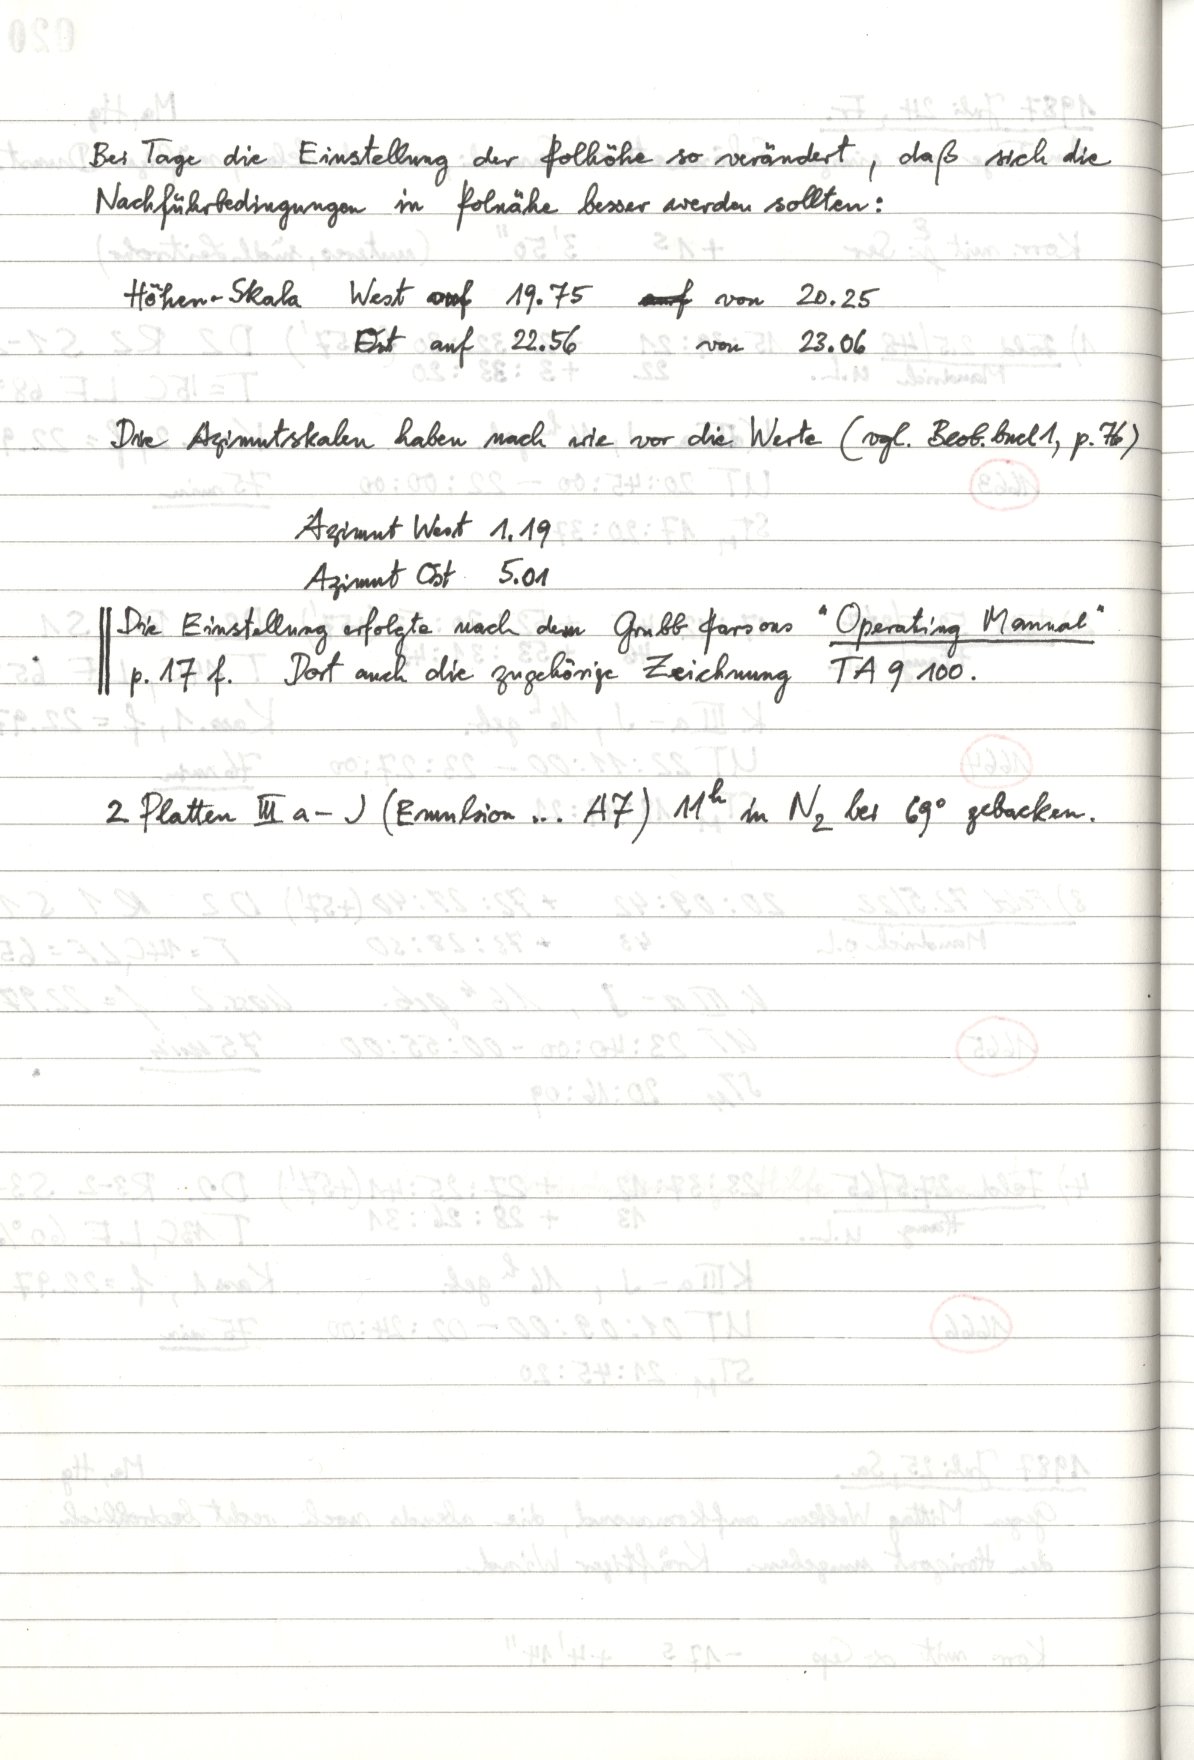 Bei Tage die Einstellung der Polhöhe so verändert, daß sich die
Nachführbedingungen in Polnähe besser werden sollten:
Höhen-Skala West auf 19.75 auf von 20.25
Ost auf 22.56 von 23.06
Die Azimutskalen haben nach wie vor die Werte (vgl. Beob.buch 1, p. 76)
Azimut West 1.19
Azimut Ost 5.01
Die Einstellung erfolgte nach dem Grubb Parsons "Operating Manual"
p. 17 f. Dort auch die zugehörige Zeichnung TA 9 100.
2 Platten III a-J (Emulsion ... A7) 11h in N2 bei 69° gebacken.